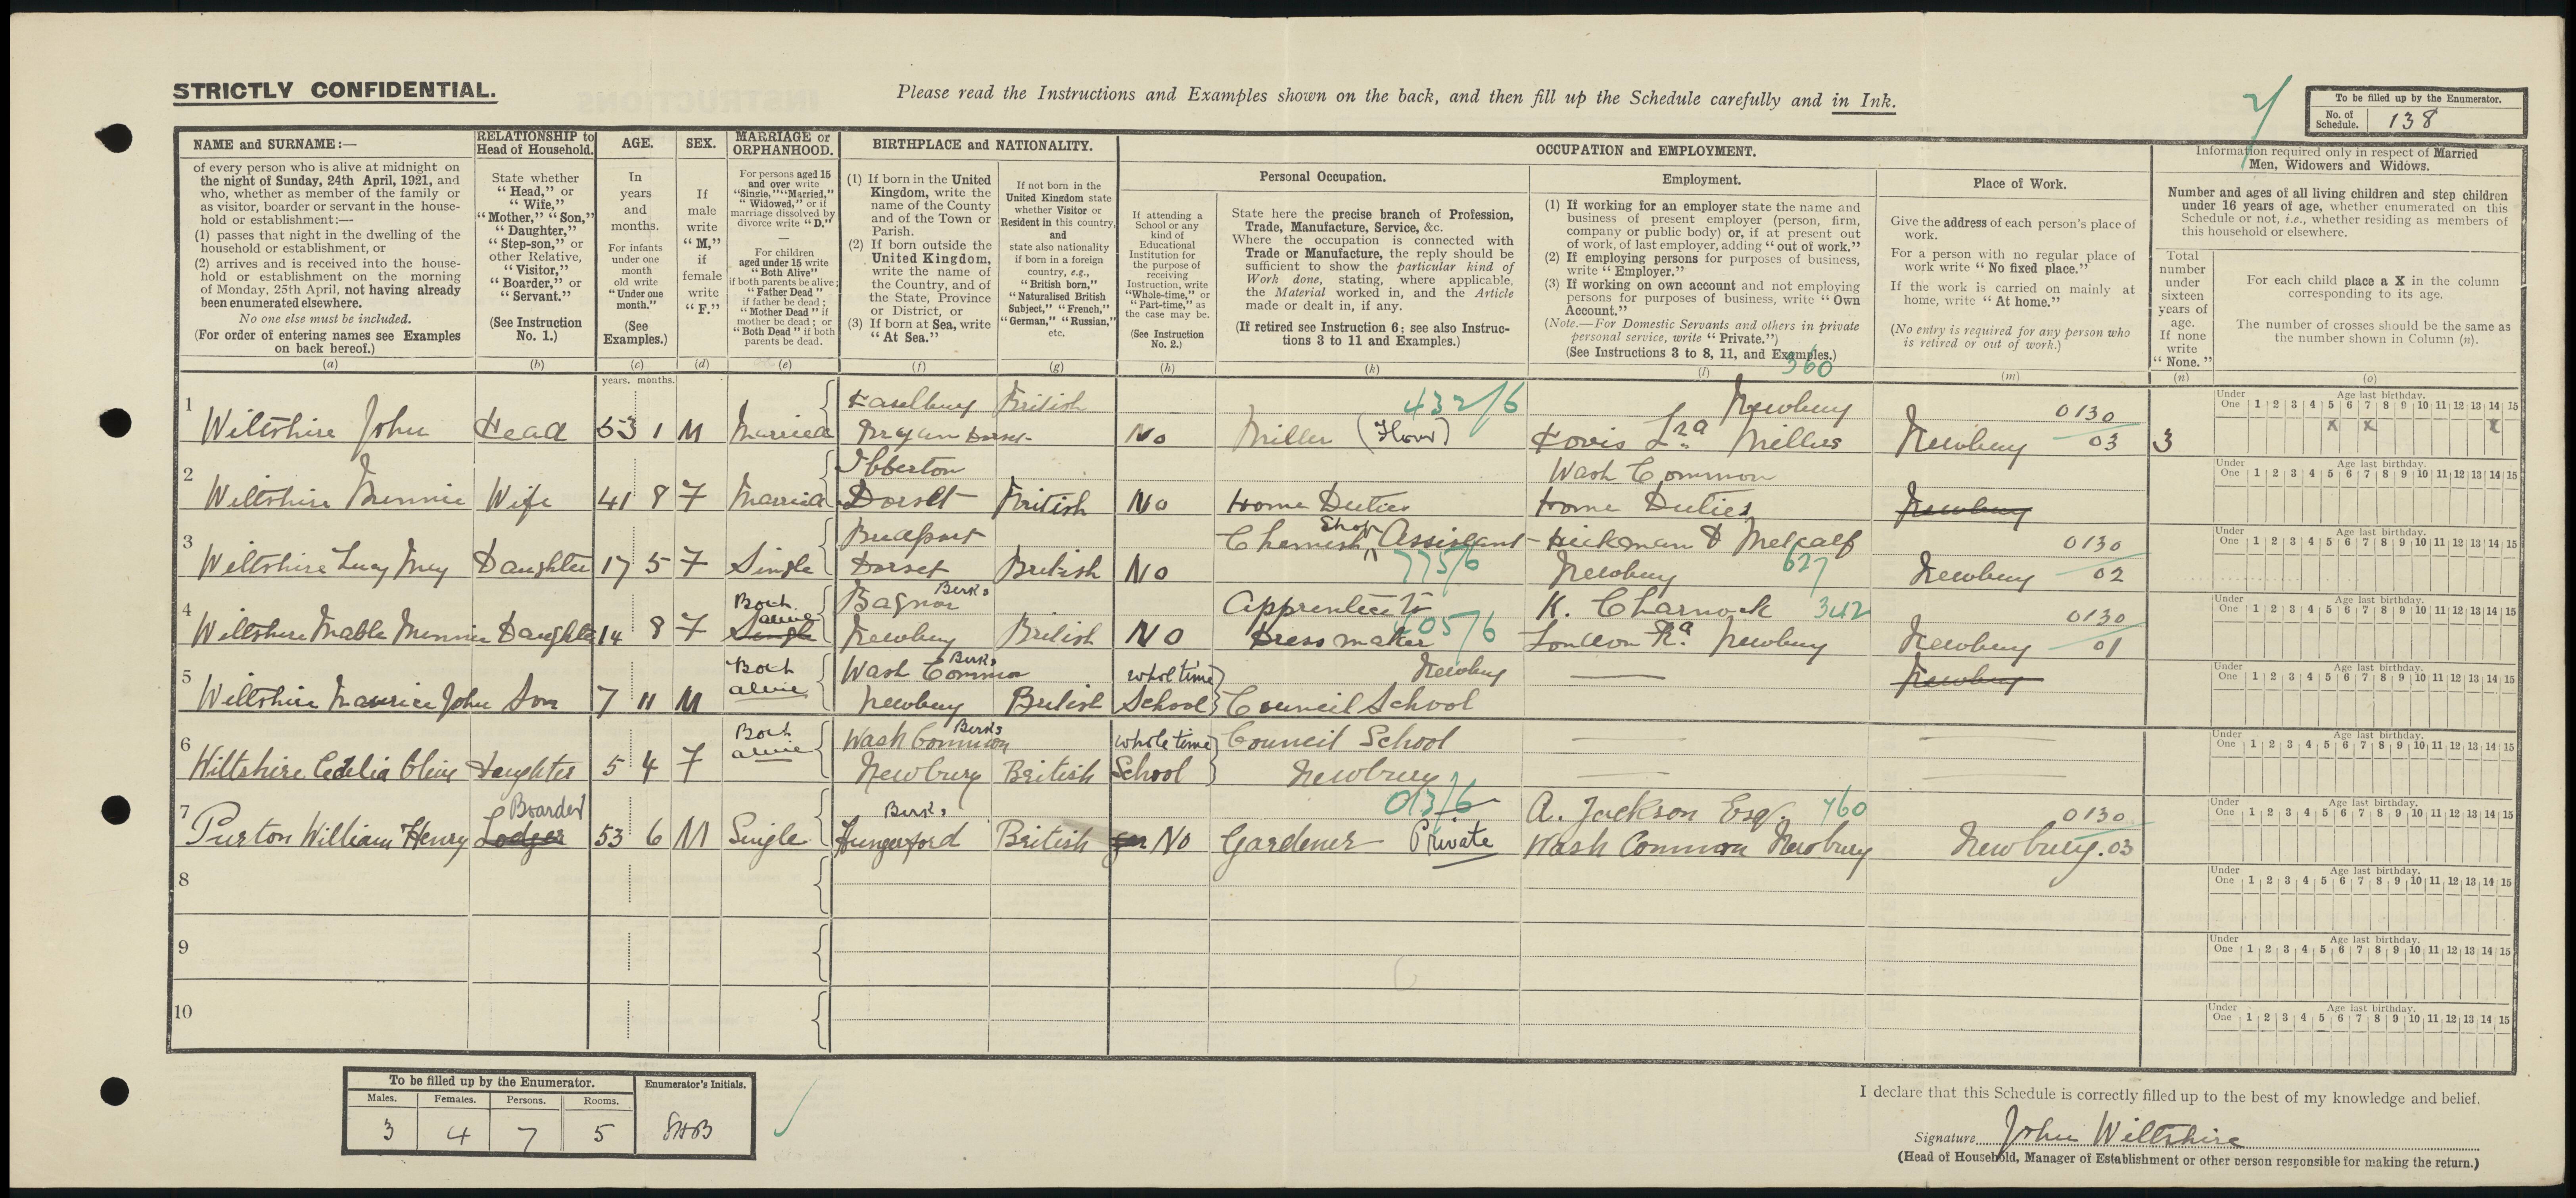 STRICTLY CONFIDENTIAL.
Please read the Instructions and Examples shown on the back, and then fill up the Schedule carefully and in Ink.
To be filled up by the Enumerator.
No. of Schedule. 138
NAME and SURNAME:—
of every person who is alive at midnight on
the night of Sunday, 24th April, 1921, and
who, whether as member of the family or
as visitor, boarder or servant in the house-
hold or establishment:—
(1) passes that night in the dwelling of the
household or establishment, or
(2) arrives and is received into the house-
hold or establishment on the morning
of Monday, 25th April, not having already
been enumerated elsewhere.
No one else must be included.
(For order of entering names see Examples
on back hereof.)
(a)
RELATIONSHIP to
Head of Household.
State whether
"Head," or
"Wife,"
"Mother," "Son,"
"Daughter,"
"Step-son," or
other Relative,
"Visitor,"
"Boarder," or
"Servant."
(See Instruction
No. 1.)
(b)
AGE.
In
years
and
months.
For infants
under one
month
old write
"Under one
month."
(See
Examples.)
(c)
years. months.
SEX.
If
male
write
"M,"
if
female
write
"F."
(d)
MARRIAGE or
ORPHANHOOD.
For persons aged 15
and over write
"Single," "Married,"
"Widowed," or if
marriage dissolved by
divorce write "D."
For children
aged under 15 write
"Both Alive"
if both parents be alive;
"Father Dead"
if father be dead;
"Mother Dead" if
mother be dead; or
"Both Dead" if both
parents be dead.
(e)
BIRTHPLACE and NATIONALITY.
(1) If born in the United
Kingdom, write the
name of the County
and of the Town or
Parish.
(2) If born outside the
United Kingdom,
write the name of
the Country, and of
the State, Province
or District, or
(3) If born at Sea, write
"At Sea."
(f)
If not born in the
United Kingdom state
whether Visitor or
Resident in this country,
and
state also nationality
if born in a foreign
country, e.g.,
"British born,"
"Naturalised British
Subject," "French,"
"German," "Russian,"
etc.
(g)
OCCUPATION and EMPLOYMENT.
If attending a
School or any
kind of
Educational
Institution for
the purpose of
receiving
Instruction, write
"Whole-time," or
"Part-time," as
the case may be.
(See Instruction
No. 2.)
(h)
Personal Occupation.
State here the precise branch of Profession,
Trade, Manufacture, Service, &c.
Where the occupation is connected with
Trade or Manufacture, the reply should be
sufficient to show the particular kind of
Work done, stating, where applicable,
the Material worked in, and the Article
made or dealt in, if any.
(If retired see Instruction 6; see also Instruc-
tions 3 to 11 and Examples.)
(k)
Employment.
(1) If working for an employer state the name and
business of present employer (person, firm,
company or public body) or, if at present out
of work, of last employer, adding "out of work."
(2) If employing persons for purposes of business,
write "Employer."
(3) If working on own account and not employing
persons for purposes of business, write "Own
Account."
(Note.—For Domestic Servants and others in private
personal service, write "Private.")
(See Instructions 3 to 8, 11, and Examples.)
(l) 360
Place of Work.
Give the address of each person's place of
work.
For a person with no regular place of
work write "No fixed place."
If the work is carried on mainly at
home, write "At home."
(No entry is required for any person who
is retired or out of work.)
(m)
Information required only in respect of Married
Men, Widowers and Widows.
Number and ages of all living children and step children
under 16 years of age, whether enumerated on this
Schedule or not, i.e., whether residing as members of
this household or elsewhere.
Total
number
under
sixteen
years of
age.
If none
write
"None."
(n)
For each child place a X in the column
corresponding to its age.
The number of crosses should be the same as
the number shown in Column (n).
(o)
Under One 1 2 3 4 5 6 7 8 9 10 11 12 13 14 15
Age last birthday.
British 432/6 Newbury 0130
1 Wiltshire John Head 53 1 M Married Dorset No Miller (Flour) Hovis Ltd Millers Newbury 03 3 x x x
Ibberton Wash Common
2 Wiltshire Minnie Wife 41 8 F Married Dorset British No Home Duties Home Duties Newbury
Shop 0130
3 Wiltshire Lucy May Daughter 17 5 F Single Dorset British No Chemist Assistant 775/6 Hickman & Metcalf Newbury 627 Newbury 02
Both alive Bagnor Berks Apprentice to K. Charnock 342 0130
4 Wiltshire Mable Minnie Daughter 14 8 F Single Newbury British No Dress maker 405/6 London Rd Newbury Newbury 01
Both alive Wash Common Berks whole time Newbury
5 Wiltshire Maurice John Son 7 11 M Newbury British School Council School Newbury
Both alive Wash Common Berks whole time Council School
6 Wiltshire Cecelia Olive Daughter 5 4 F Newbury British School Newbury
Boarder Berks 013/6 A. Jackson Esq. 760 0130
7 Purton William Henry Lodger 53 6 M Single Hungerford British No Gardener Private Wash Common Newbury Newbury. 03
8
9
10
To be filled up by the Enumerator.
Males. Females. Persons. Rooms.
3 4 7 5
Enumerator's Initials.
I declare that this Schedule is correctly filled up to the best of my knowledge and belief.
Signature John Wiltshire
(Head of Household, Manager of Establishment or other person responsible for making the return.)